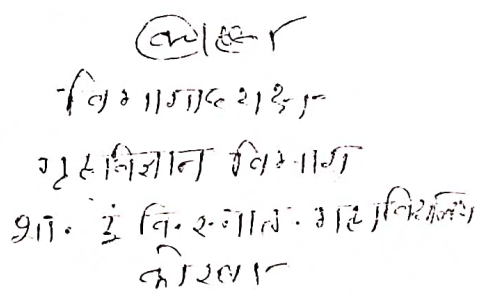 विभागाध्यक्ष
गृहविज्ञान विभाग
शा. इं. वि. स्नात. महाविद्यालय
कोरबा